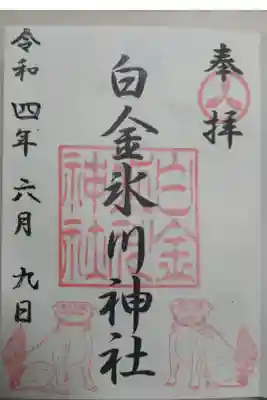 奉拝
白金氷川神社
白金氷川神社
令和四年六月九日